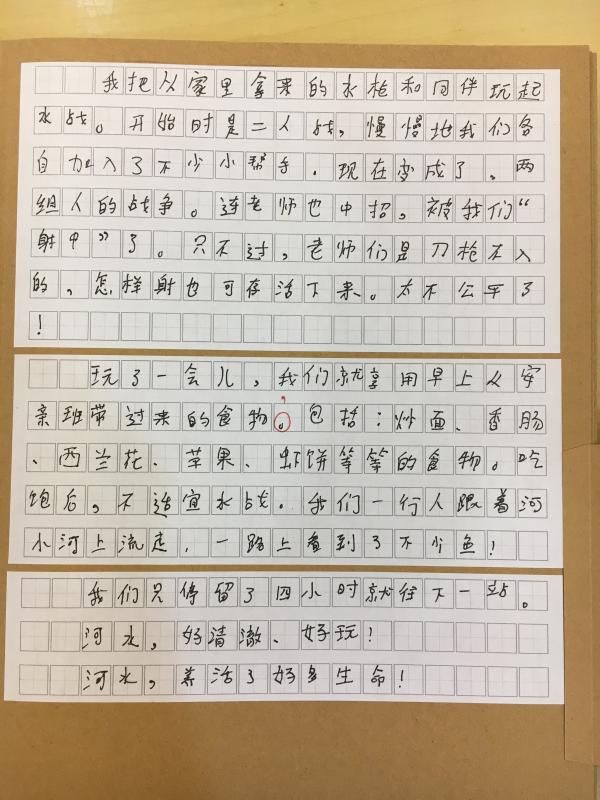 我把从家里拿来的水枪和同伴玩起
水战。开始时是二人战，慢慢地我们各
自加入了不少小帮手．现在变成了，两
组人的战争。连老师也中招，被我们“
射中”了。只不过，老师们是刀枪不入
的，怎样射也可存活下来。太不公平了
！
玩了一会儿，我们就享用早上从安
亲班带过来的食物。包括：炒面、香肠
、西兰花、苹果、虾饼等等的食物。吃
饱后，不适宜水战．我们一行人跟着河
小河上流走，一路上看到了不少鱼！
我们只停留了四小时就往下一站。
河水，好清澈、好玩！
河水，养活了好多生命！